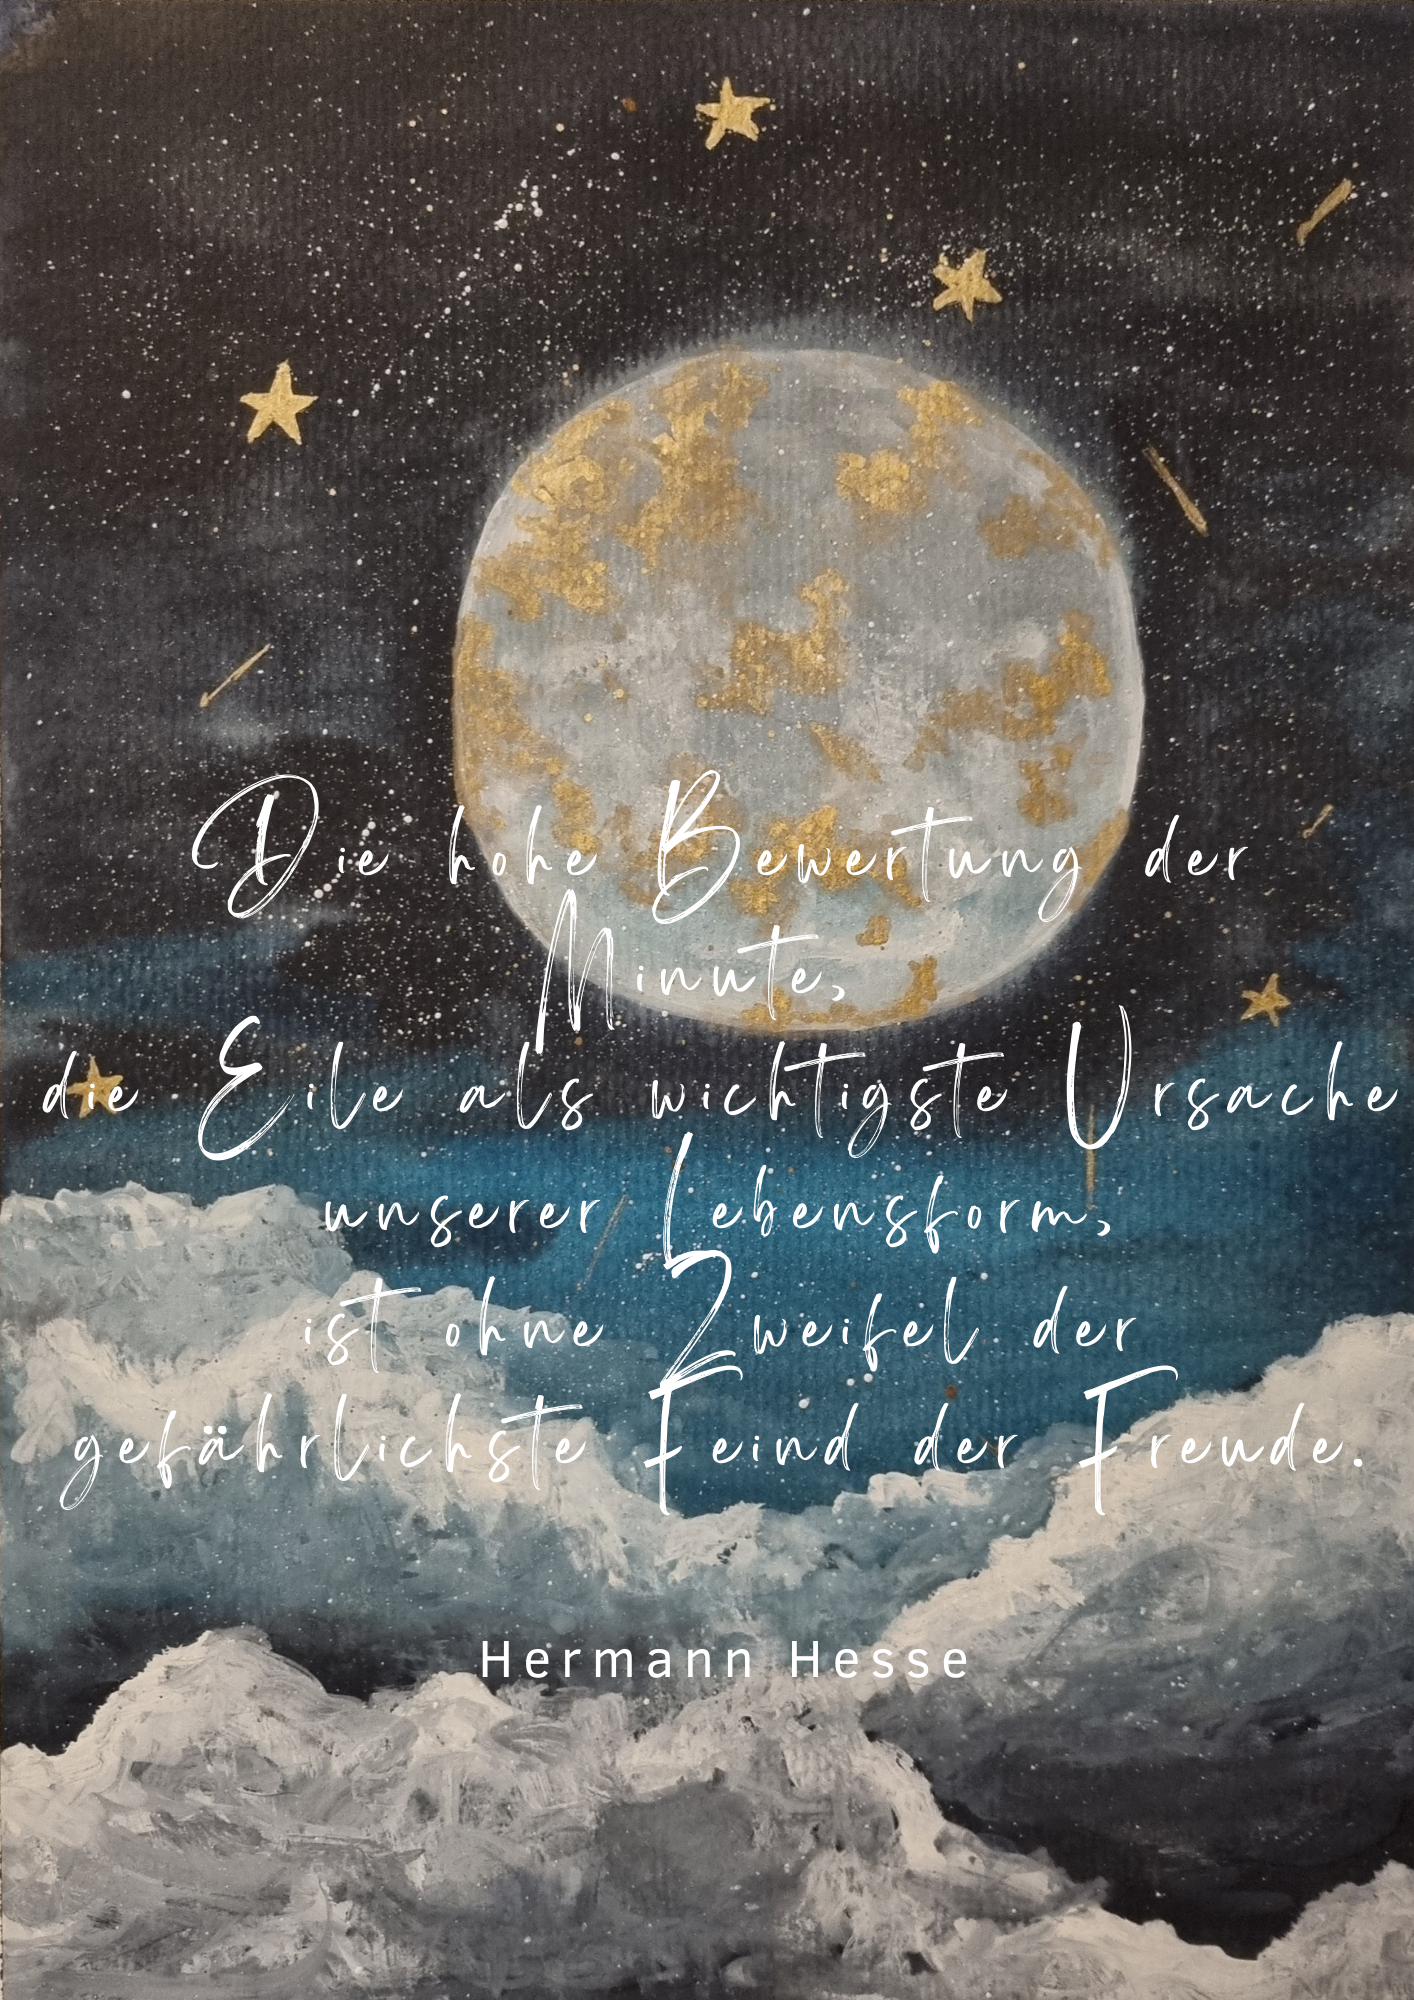 Die hohe Bewertung der
Minute,
die Eile als wichtigste Ursache
unserer Lebensform,
ist ohne Zweifel der
gefährlichste Feind der Freude.
Hermann Hesse